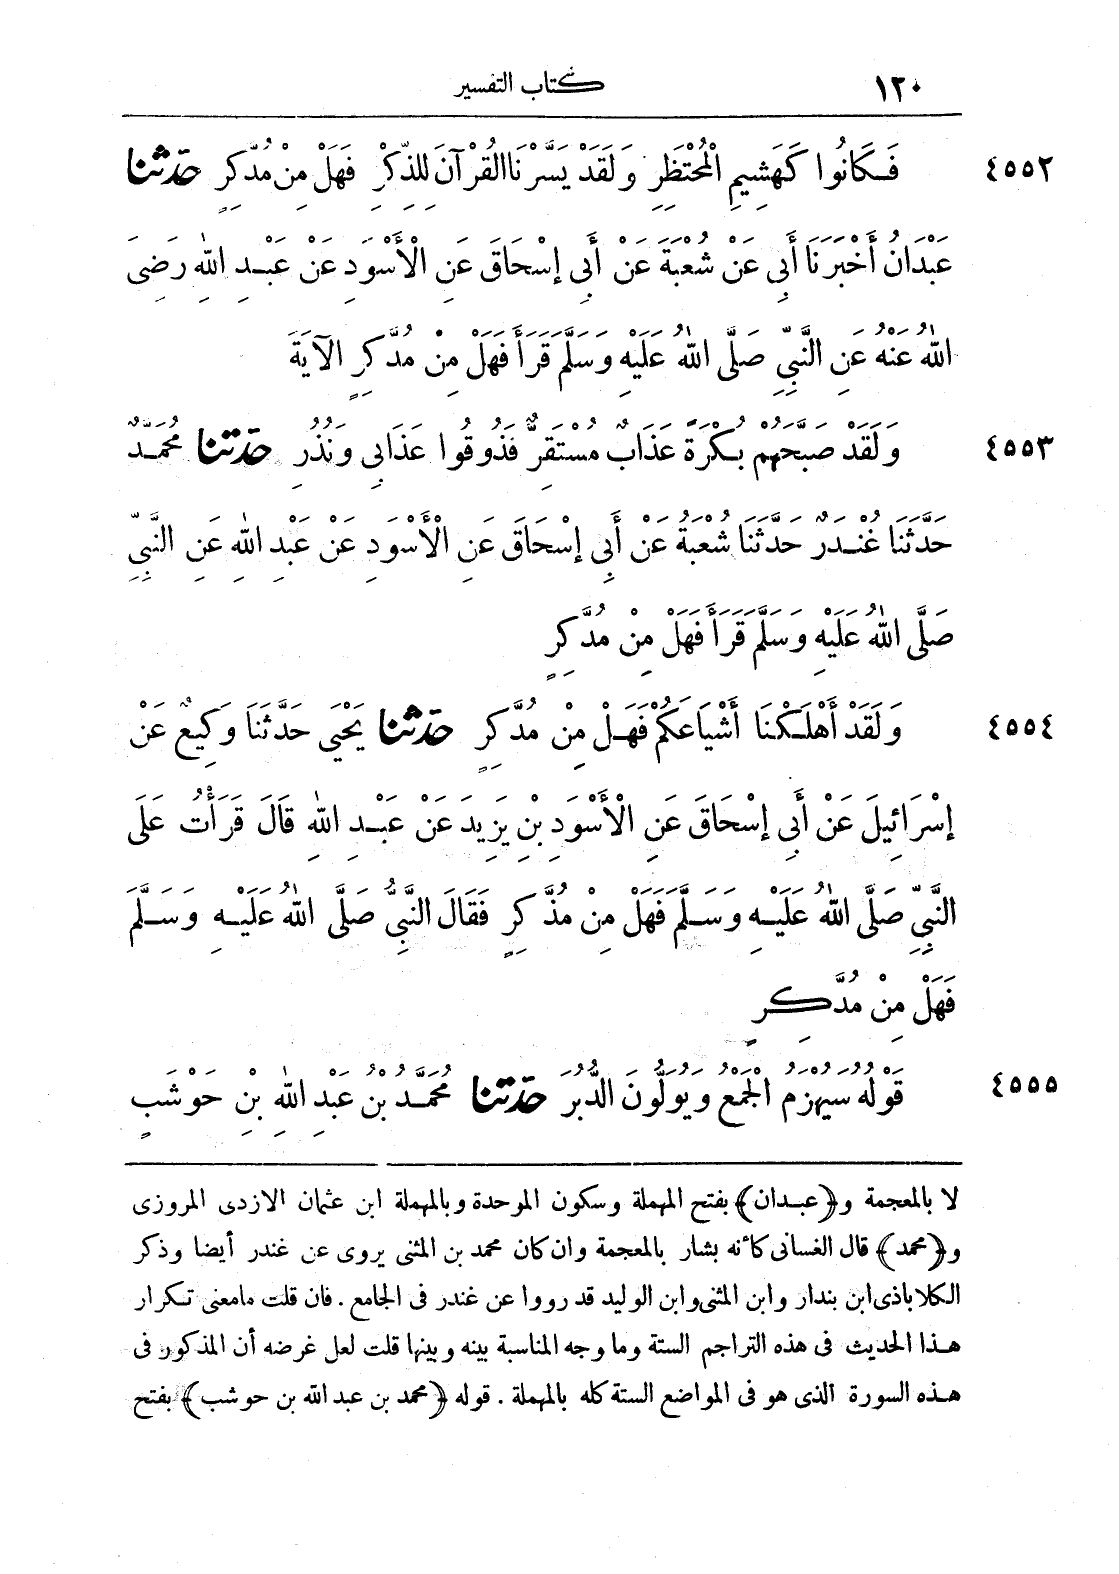 ١٢٠ كتاب التفسير
٤٥٥٢ فَكَانُوا كَهَشِيمِ الْمُحْتَظِرِ وَلَقَدْ يَسَّرْنَا الْقُرْآنَ لِلذِّكْرِ فَهَلْ مِنْ مُدَّكِرٍ حَدَّثَنَا
عَبْدَانُ أَخْبَرَنَا أَبِي عَنْ شُعْبَةَ عَنْ أَبِي إِسْحَاقَ عَنِ الْأَسْوَدِ عَنْ عَبْدِ اللهِ رَضِيَ
اللهُ عَنْهُ عَنِ النَّبِيِّ صَلَّى اللهُ عَلَيْهِ وَسَلَّمَ قَرَأَ فَهَلْ مِنْ مُدَّكِرٍ الآيَةَ
٤٥٥٣ وَلَقَدْ صَبَّحَهُمْ بُكْرَةً عَذَابٌ مُسْتَقِرٌّ فَذُوقُوا عَذَابِي وَنُذُرِ حَدَّثَنَا مُحَمَّدٌ
حَدَّثَنَا غُنْدَرٌ حَدَّثَنَا شُعْبَةُ عَنْ أَبِي إِسْحَاقَ عَنِ الْأَسْوَدِ عَنْ عَبْدِ اللهِ عَنِ النَّبِيِّ
صَلَّى اللهُ عَلَيْهِ وَسَلَّمَ قَرَأَ فَهَلْ مِنْ مُدَّكِرٍ
٤٥٥٤ وَلَقَدْ أَهْلَكْنَا أَشْيَاعَكُمْ فَهَلْ مِنْ مُدَّكِرٍ حَدَّثَنَا يَحْيَى حَدَّثَنَا وَكِيعٌ عَنْ
إِسْرَائِيلَ عَنْ أَبِي إِسْحَاقَ عَنِ الْأَسْوَدِ بْنِ يَزِيدَ عَنْ عَبْدِ اللهِ قَالَ قَرَأْتُ عَلَى
النَّبِيِّ صَلَّى اللهُ عَلَيْهِ وَسَلَّمَ فَهَلْ مِنْ مُذَّكِرٍ فَقَالَ النَّبِيُّ صَلَّى اللهُ عَلَيْهِ وَسَلَّمَ
فَهَلْ مِنْ مُدَّكِرٍ
٤٥٥٥ قَوْلُهُ سَيُهْزَمُ الْجَمْعُ وَيُوَلُّونَ الدُّبُرَ حَدَّثَنَا مُحَمَّدُ بْنُ عَبْدِ اللهِ بْنِ حَوْشَبٍ
لا بالمعجمة و﴿عبدان﴾ بفتح المهملة وسكون الموحدة وبالمهملة ابن عثمان الازدى المروزى
و﴿محمد﴾ قال الغسانى كأنه بشار بالمعجمة وان كان محمد بن المثنى يروى عن غندر أيضا وذكر
الكلاباذى ابن بندار وابن المثنى وابن الوليد قد رووا عن غندر فى الجامع . فان قلت مامعنى تكرار
هذا الحديث فى هذه التراجم الستة وما وجه المناسبة بينه وبينها قلت لعل غرضه أن المذكور فى
هذه السورة الذى هو فى المواضع الستة كله بالمهملة . قوله ﴿محمد بن عبد الله بن حوشب﴾ بفتح